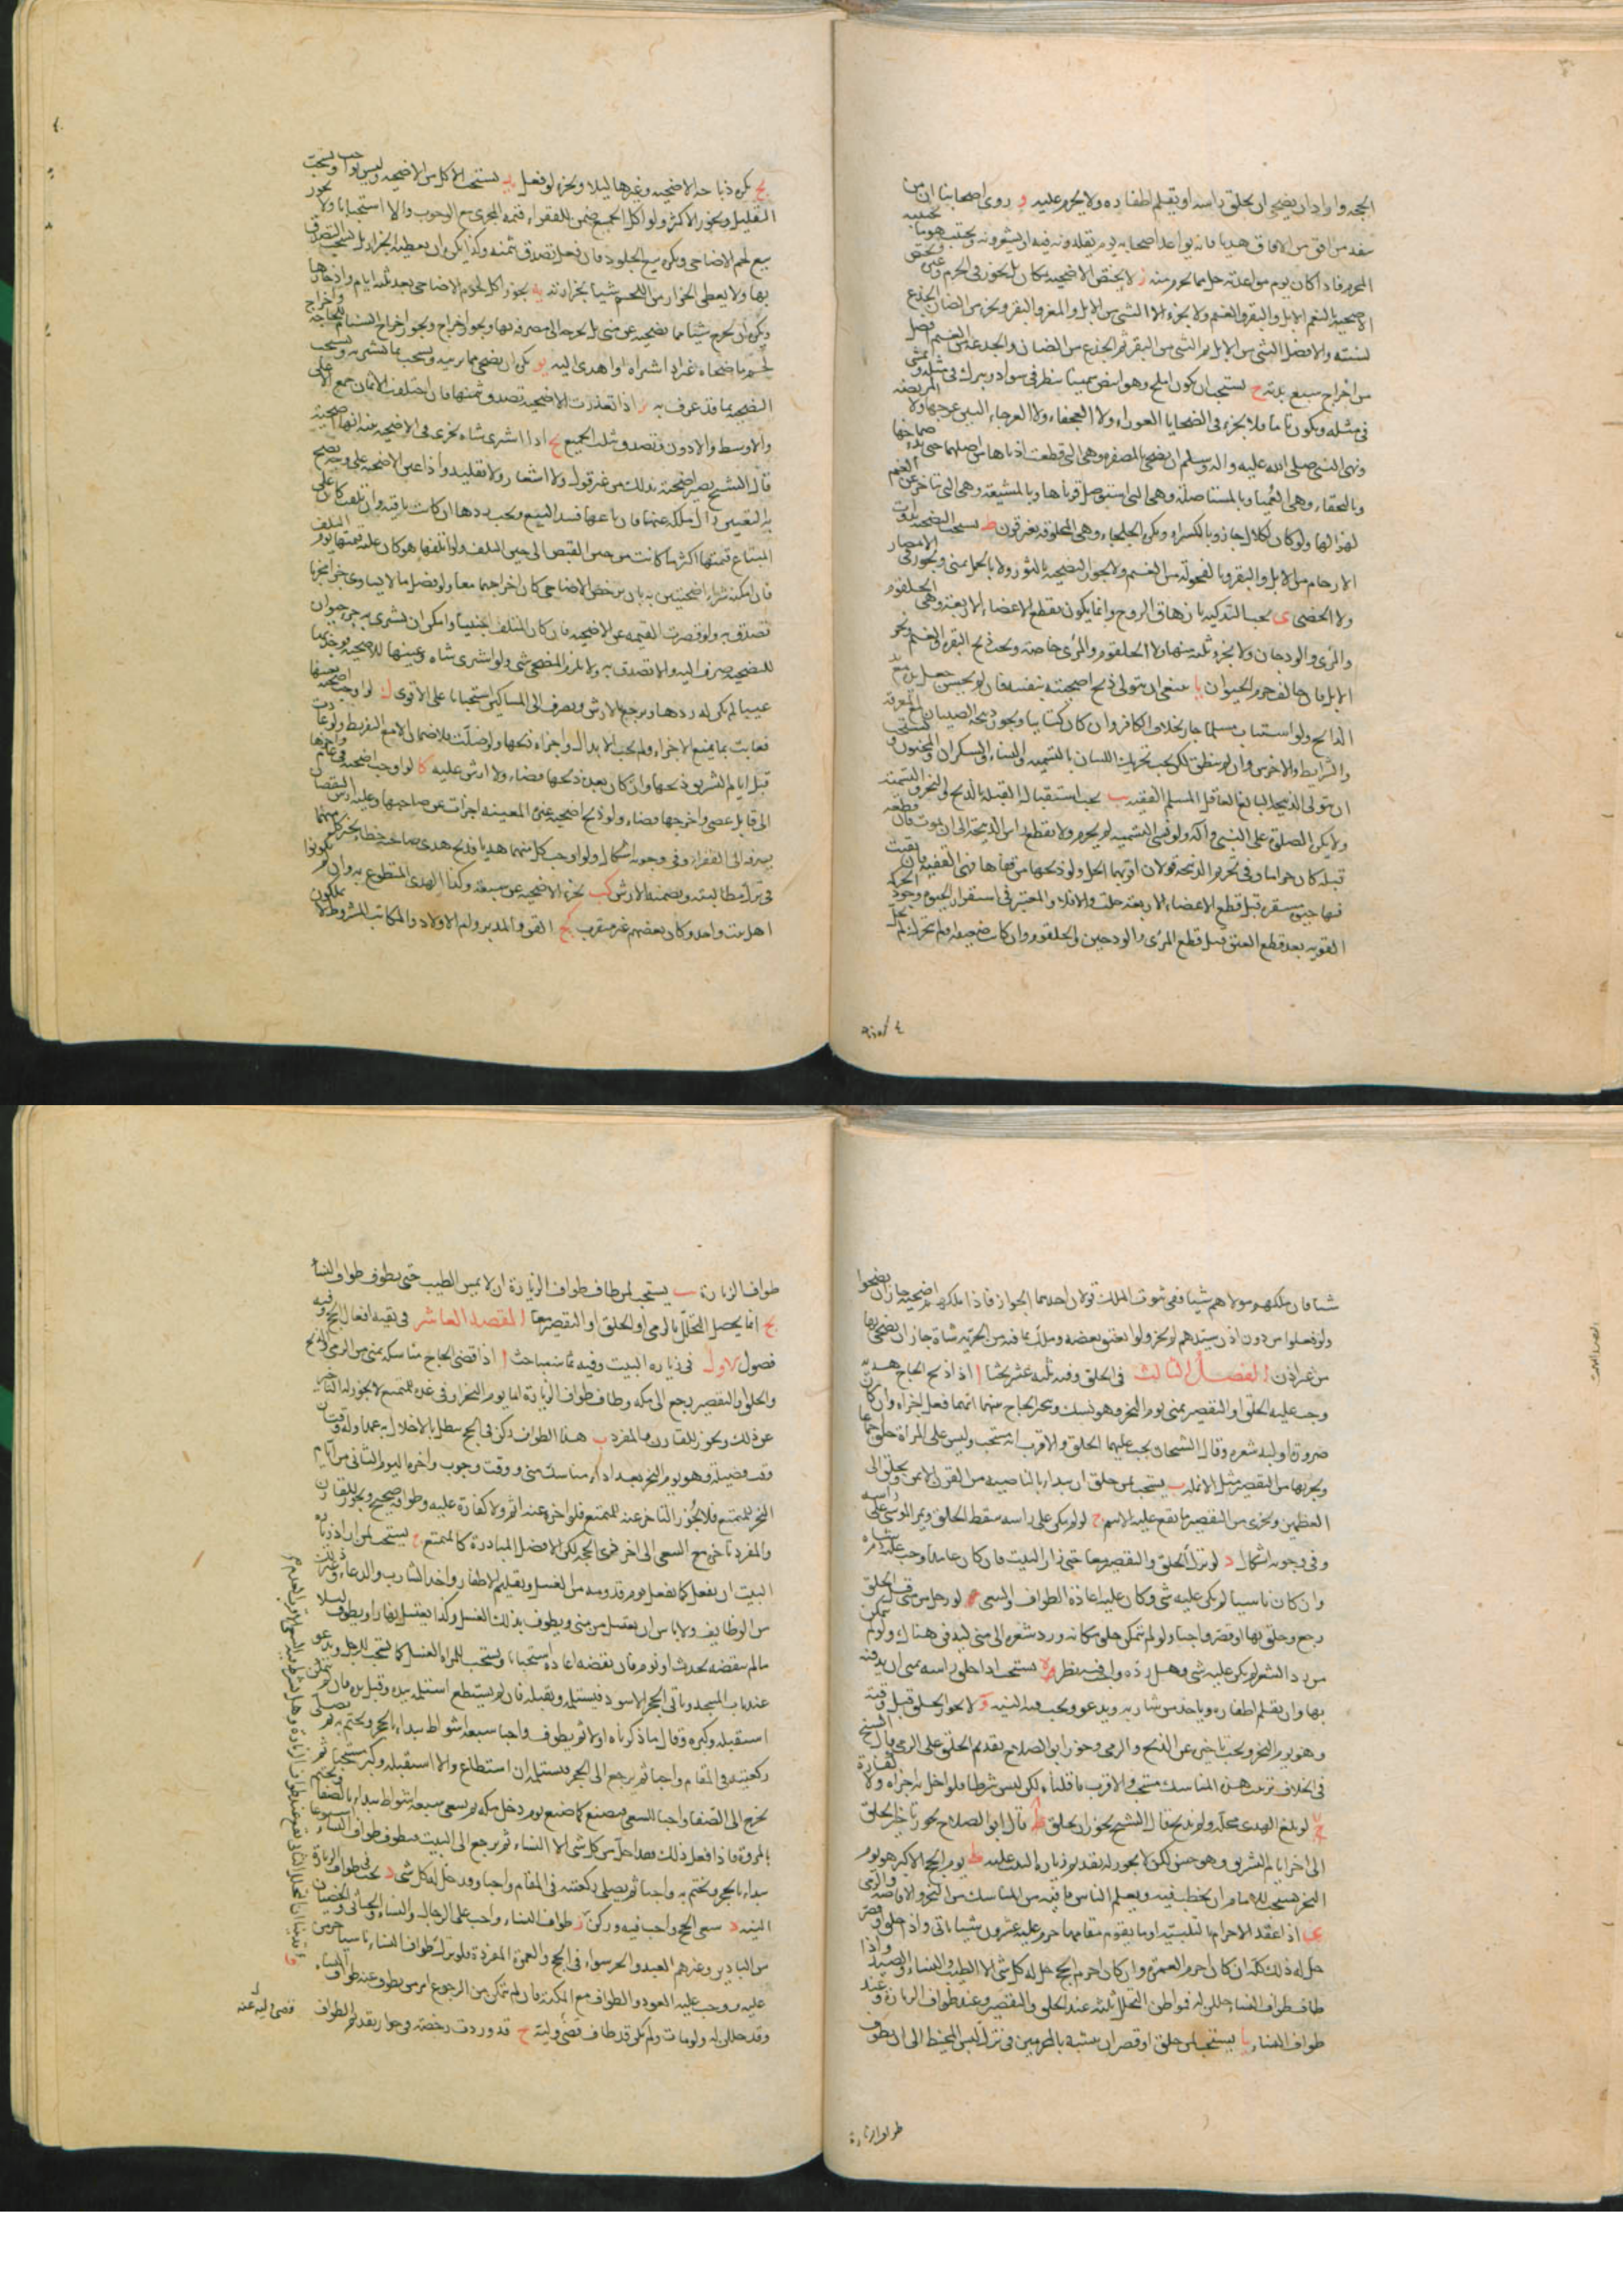 الحجه واراد ان يضحي ان يحلق راسه او يقلم اظفاره ولا يحرم عليه و روى اصحابنا ان من
ينفذ من افق من الافاق هديا فانه يواعد اصحابه يوم يقلدونه فيه او يشعرونه ويجتنب هو ما يجتنبه
المحرم فاذا كان يوم مواعدته حل مما يحرم منه ز لا يختص الاضحية مكان بل يجوز في الحرم وغيره ويختص
الاضحية بالنعم الابل والبقر والغنم ولا يجزء الا الثني من الابل والمعز والبقر ويجزء من الضان الجذع
لسنته والافضل الثني من الابل ثم الثني من البقر ثم الجذع من الضان والجذعة من الغنم افضل
من اخراج سبع بدنة ح يستحب ان يكون املح وهو ابيض سمينا ينظر في سواد ويبرك في مثله ويمشي
في مثله ويكون تاما فلا يجزء في الضحايا العوراء ولا العجفاء ولا العرجاء البين عرجها ولا المريضة
ونهى النبي صلى الله عليه واله وسلم ان يضحى بالمصفرة وهي التي قطعت اذناها من اصلهما حتى بدا صماخها
وبالبخقاء وهي العمياء وبالمستاصلة وهي التي استوصل قرناها وبالمشيعة وهي التي تتاخر عن الغنم
لهزالها ولو كان لكلال جاز وبالكسراء ويكره الجلحاء وهي المخلوقة بغير قرون ط يستحب التضحية بذوات
الارحام من الابل والبقر وبالفحولة من الغنم ولا يجوز التضحية بالثور ولا بالجمل بمنى ويجوز في الامصار
ولا الخصي ى يجب التذكية بازهاق الروح وانما يكون بقطع الاعضاء الاربعة وهي الحلقوم
والمرئ والودجان ولا يجزء ثلثة منها ولا الحلقوم والمرئ خاصة ويجب ذبح البقر والغنم ونحر
الابل فان خالف حرم الحيوان يا ينبغي ان يتولى ذبح اضحيته بنفسه فان لم يحسن جعل يده مع يد
الذابح ولو استناب مسلما جاز بخلاف الكافر وان كان كتابيا ويجوز ذبيحة الصبيان مع المعرفة
والشرايط والاخرس وان لم ينطق لكن يجب تحريك اللسان بالتسمية والنساء والسكران والمجنون ويستحب
ان يتولى الذبيحة البالغ العاقل المسلم الفقيه يب يجب استقبال القبلة بالذبح او النحر والتسمية
ولا يكره الصلوة على النبي واله ولو نسي التسمية لم يحرم ولا يقطع راس الذبيحة الى ان يموت فان قطعه
قبله كان حراما وفي تحريم الذبيحة قولان اقربهما الحل ولو ذبحها من قفاها فهي القفية فان بقيت
فيها حيوة مستقرة قبل قطع الاعضاء الاربعة حلت والا فلا والمعتبر في استقرار الحيوة وجود الحركة
القوية بعد قطع العنق قبل قطع المرئ والودجين والحلقوم وان كانت ضعيفة او لم تتحرك لم يحل
يج يكره ذباحة الاضحية وغيرها ليلا ويجزء لو فعل يد يستحب الاكل من الاضحية وليس بواجب ويستحب
التقليل ويجوز الاكثر ولو اكل الجميع ضمن للفقراء قيمة المجزى مع الوجوب والا استحبابا ولا يجوز
بيع لحم الاضاحي ويكره بيع الجلود فان فعل تصدق بثمنه وكذا يكره ان يعطيها الجزار بل يستحب التصدق
بها ولا يعطى الجزار من اللحم شيئا بجزارته يه يجوز اكل لحوم الاضاحي بعد ثلثة ايام وادخارها
ويكره ان يخرج شيئا مما يضحيه عن منى بل يخرجه الى مصرفه بها ويجوز اخراج السنام للحاجة واخراج
لحم ما ضحاه غيره اذا اشتراه او اهدى اليه يو يكره ان يضحي بما يربيه ويستحب بما يشتريه ويستحب
التضحية بما قد عرف به يز اذا تعذرت الاضحية تصدق بثمنها فان اختلفت الاثمان جمع الاعلى
والاوسط والادون وتصدق بثلث الجميع يح اذا اشترى شاة تجزى في الاضحية بنية انها اضحية
قال الشيخ يصير اضحية بذلك من غير قول ولا اشعار ولا تقليد واذا عين الاضحية على وجه يصح
به التعيين زال ملكه عنها فان باعها فسد البيع ويجب ردها ان كانت باقية وان تلفت كان على
المبتاع قيمتها اكثر ما كانت من حين القبض الى حين التلف ولو اتلفها هو كان عليه قيمتها يوم التلف
فان امكنه شراء اضحيتين به بان يرخص الاضاحي كان اخراجهما معا ولو فضل ما لا يساوى جزءا مجزيا
تصدق به ولو قصرت القيمة عن الاضحية فان كان المتلف اجنبيا وامكن ان يشترى به جزء حيوان
للتضحية صرف اليه والا تصدق به ولا يلزم المضحي شئ ولو اشترى شاة وعينها للاضحية فوجد بها
عيبا لم يكن له ردها ويرجع بالارش ويصرف الى المساكين استحبابا على الاقوى ك لو اوجب اضحية بعينها
فعابت بما يمنع الاجزاء ولم يجب الابدال واجزاه ذبحها ولو ضلت فلا ضمان الا مع التفريط ولو عادت
قبل ايام التشريق ذبحها وان كان بعده ذبحها قضاء ولا ارش عليه كا لو اوجب اضحية في عام واخرها
الى قابل عصى واخرجها قضاء ولو ذبح اضحية غيره المعينة اجزات عن صاحبها وعليه ارش النقصان
يصرفه الى الفقراء وفي وجوبه اشكال ولو اوجب كل منهما هديا فذبح هدى صاحبه خطا يجزى كل منهما
في ترك مطالبته ويضمنه الارش كب تجزء الاضحية عن سبعة وكذا الهدى المتطوع به وان لم يكونوا
اهل بيت واحد وكان بعضهم غير متقرب كج القن والمدبر وام الاولاد والمكاتب المشروط لا يملكون
شيئا فان ملكهم مولاهم شيئا ففي ثبوت الملك قولان احدهما الجواز فاذا ملكهم اضحية جاز ان يضحوا
ولو فعلوا من دون اذن سيدهم لم يجز ولو انعتق بعضه وملك بما فيه من الحرية شاة جاز ان يضحي بها
من غير اذن الفصل الثالث في الحلق وفيه ثلثة عشر بحثا ا اذا ذبح الحاج هديه
وجب عليه الحلق او التقصير بمنى يوم النحر وهو نسك ويتخير الحاج بينهما ايهما فعل اجزاه وان كان
صرورة او لبد شعره وقال الشيخان يجب عليهما الحلق والاقرب انه مستحب وليس على المراة حلق اجماعا
ويجزيها من التقصير مثل الانملة ب يستحب لمن حلق ان يبدا بالناصية من القرن الايمن ويحلق الى
العظمين ويجزى من التقصير ما يقع عليه الاسم ج لو لم يكن على راسه سقط الحلق ويمر الموسى على راسه
وفي وجوبه اشكال د لو ترك الحلق والتقصير معا حتى زار البيت فان كان عامدا وجب عليه دم شاة
وان كان ناسيا لم يكن عليه شئ وكان عليه اعادة الطواف والسعي ه لو رحل من منى قبل الحلق
رجع وحلق بها او قصر واجبا ولو لم يتمكن حلق مكانه ورد شعره الى منى ليدفن هناك ولو لم يتمكن
من رد الشعر لم يكن عليه شئ وهل رده واجب فيه نظر و يستحب اذا حلق راسه بمنى ان يدفنه
بها وان يقلم اظفاره وياخذ من شاربه ويدعو ويجب فيه النية ز لا يجوز الحلق قبل وقته
وهو يوم النحر ويجب تاخيره عن الذبح والرمي وجوز ابو الصلاح تقديم الحلق على الرمي وقال الشيخ
في الخلاف ترتيب هذه المناسك مستحب والاقرب ما قلناه لكن ليس شرطا فلو اخل به اجزاه ولا كفارة
ح لو بلغ الهدى محله ولم يذبح قال الشيخ يجوز ان يحلق ط قال ابو الصلاح يجوز تاخير الحلق
الى اخر ايام التشريق وهو حسن لكن لا يجوز له تقديم زيارة البيت عليه ط يوم الحج الاكبر هو يوم
النحر يستحب للامام ان يخطب فيه ويعلم الناس ما فيه من المناسك من النحر والافاضة والرمي
ى اذا عقد الاحرام بالتلبية او ما يقوم مقامها حرم عليه عشرون شيئا تاتي واذا حلق او قصر
حل له ذلك كله ان كان احرم العمرة وان كان احرم الحج حل له كل شئ الا الطيب والنساء والصيد واذا
طاف طواف النساء حللن له فمواطن التحلل ثلثة عند الحلق والتقصير وعند طواف الزيارة وعند
طواف النساء يا يستحب لمن حلق او قصر ان يتشبه بالمحرمين في ترك لبس المخيط الى ان يطوف
طواف الزيارة
طواف الزيارة يب يستحب لمن طاف طواف الزيارة ان لا يمس الطيب حتى يطوف طواف النساء
يج انما يحصل التحلل بالرمي او الحلق او التقصير معا المقصد العاشر في بقية افعال الحج وفيه
فصول الاول في زيارة البيت وفيه ثمانية مباحث ا اذا قضى الحاج مناسكه بمنى من الرمي والذبح
والحلق او التقصير رجع الى مكه وطاف طواف الزيارة اما يوم النحر او في غده للمتمتع لا يجوز له التاخير
عن ذلك ويجوز للقارن والمفرد ب هذا الطواف ركن في الحج يبطل بالاخلال به عمدا وله وقتان
وقت فضيلة وهو يوم النحر بعد اداء مناسك منى ووقت وجوب واخره اليوم الثاني من ايام
النحر للمتمتع فلا يجوز التاخر عنه للمتمتع فلو اخره عنه اثم ولا كفارة عليه وطوافه صحيح ويجوز للقارن
والمفرد تاخيره مع السعي الى اخر ذي الحجة لكن الافضل المبادرة كالمتمتع ج يستحب لمن اراد زيارة
البيت ان يفعل كما يفعل يوم قدومه من الغسل وتقليم الاظفار واخذ الشارب والدعاء وغير ذلك
من الوظايف ولا باس ان يغتسل من منى ويطوف بذلك الغسل وكذا يغتسل نهارا ويطوف ليلا
ما لم ينقضه بحدث او نوم فان نقضه اعاده استحبابا ويستحب للمراة الغسل كما يستحب للرجل ويدعو
عند باب المسجد وياتي الحجر الاسود فيستلمه ويقبله فان لم يستطع استلمه بيده وقبل يده فان لم يتمكن
استقبله وكبر وقال ما ذكرناه اولا ثم يطوف واجبا سبعة اشواط يبدا بالحجر ويختم به ثم يصلي
ركعتيه في المقام واجبا ثم يرجع الى الحجر فيستلمه ان استطاع والا استقبله وكبر مستحبا ثم
يخرج الى الصفا واجبا للسعي فيصنع كما صنع يوم دخل مكه ثم يسعى سبعة اشواط يبدا بالصفا ويختم
بالمروة فاذا فعل ذلك فقد احل من كل شئ الا النساء ثم يرجع الى البيت فيطوف طواف النساء اسبوعا
يبدا بالحجر ويختم به واجبا ثم يصلي ركعتيه في المقام واجبا وقد حل له كل شئ د يجب في طواف الزيارة
النية د سعي الحج واجب فيه وركن ز طواف النساء واجب على الرجال والنساء والخناثى والخصيان
من البالغين وغيرهم العبد والحر سواء في الحج والعمرة المفردة فلو ترك طواف النساء ناسيا حرمن
عليه ووجب عليه العود والطواف مع المكنة فان لم يتمكن من الرجوع امر من يطوف عنه طواف النساء
وقد حللن له ولو مات ولم يكن قد طاف قضى وليه ح قد وردت رخصة في جواز تقديم الطواف
قضى وليه عنه